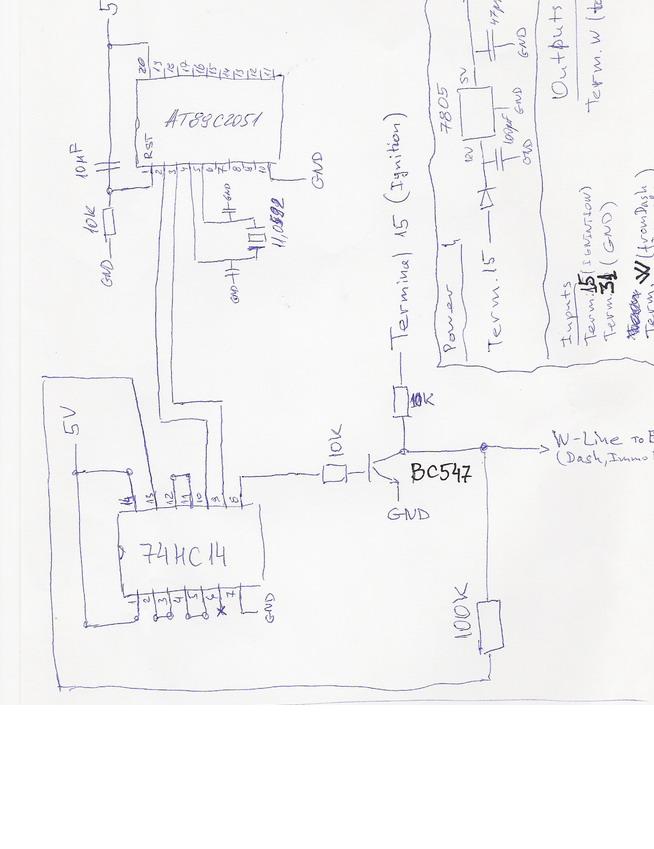 5
20
19
18
17
16
15
14
13
12
11
AT89C2051
RST
1
2
3
4
5
6
7
8
9
10
10µF
10K
GND
GND
GND
GND
11,0592
Terminal 15 (Ignition)
Power
Term. 15
12V
7805
5V
100µF
GND
GND
47µ
GND
Outputs
Term. W (to
Inputs
Term. 15 (IGNITION)
Term. 31 (GND)
Term. W (from Dash
5V
14
13
12
11
10
9
8
74HC14
1
2
3
4
5
6
7
GND
10K
10K
BC547
GND
W-Line To E
(Dash, Immo
100K